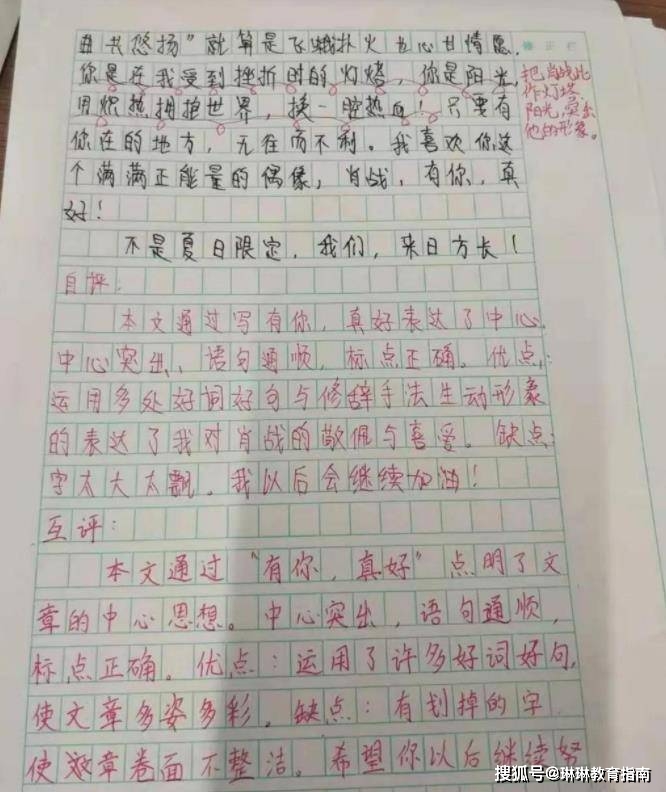 且书悠扬”就算是飞蛾扑火也心甘情愿.
你是在我受到挫折时的灯塔，你是阳光，
用炽热拥抱世界，换一腔热血！只要有
你在的地方，无往而不利。我喜欢你这
个满满正能量的偶像，肖战，有你，真
好！
不是夏日限定，我们，来日方长！
把肖战比
作灯塔
阳光，突出
他的形象。
自评：
本文通过写有你，真好表达了中心，
中心突出，语句通顺，标点正确。优点：
运用多处好词好句与修辞手法生动形象
的表达了我对肖战的敬佩与喜爱。缺点：
字太大太飘。我以后会继续加油！
互评：
本文通过“有你，真好”点明了文
章的中心思想。中心突出，语句通顺，
标点正确。优点：运用了许多好词好句，
使文章多姿多彩。缺点：有划掉的字
使这章卷面不整洁。希望你以后继续努
搜狐号@琳琳教育指南